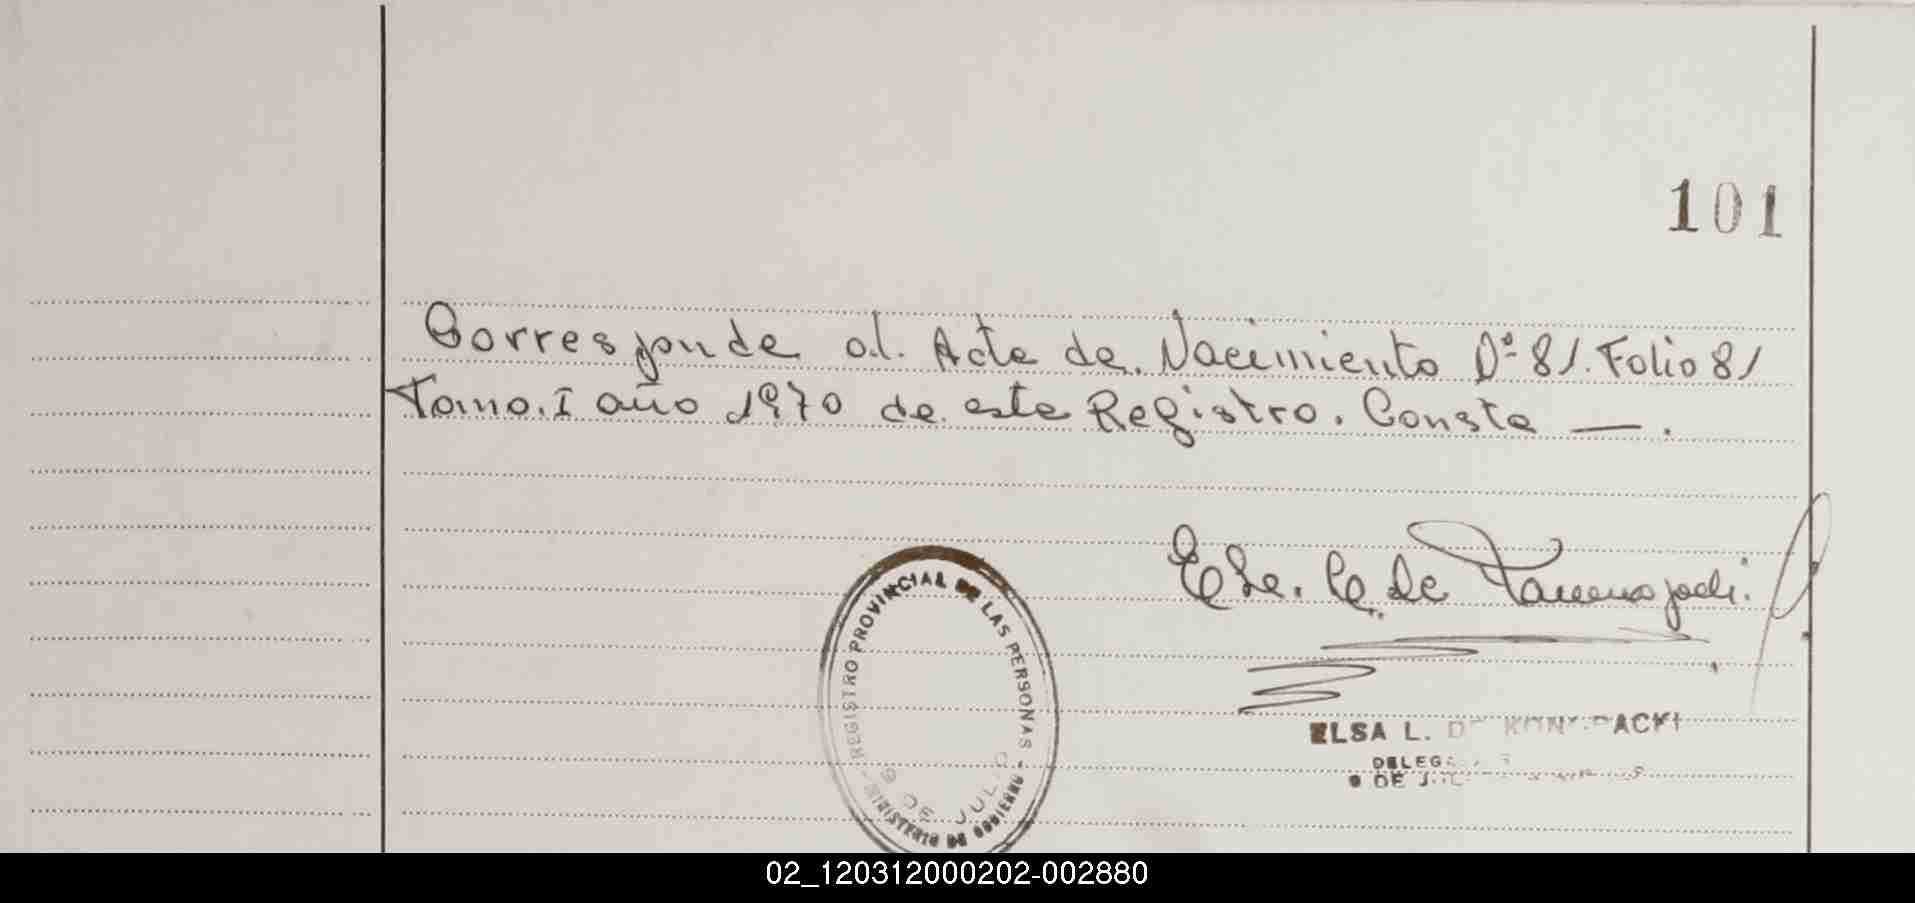 101
Corresponde al. Acta de. Nacimiento Nº 81. Folio 81
Tomo. I año 1970 de este Registro. Conste — .
REGISTRO PROVINCIAL DE LAS PERSONAS
MINISTERIO DE GOBIERNO
9 DE JULIO
ELSA L. DE
9 DE
02_120312000202-002880